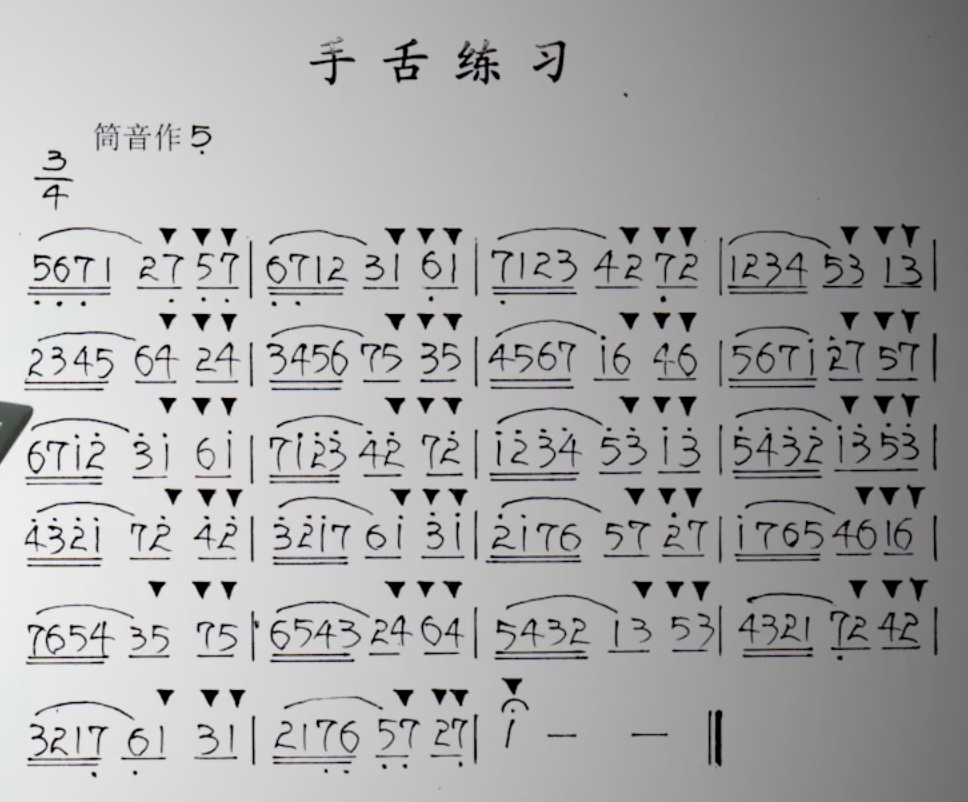 手舌练习
筒音作5̣
3/4
5̣6̣7̣1 27̣ 5̣7̣ | 6̣7̣12 31 6̣1 | 7̣123 42 7̣2 | 1234 53 13 |
2345 64 24 | 3456 75 35 | 4567 i̇6 46 | 567i̇ 2̇7 57 |
67i̇2̇ 3̇i̇ 6i̇ | 7i̇2̇3̇ 4̇2̇ 72̇ | i̇2̇3̇4̇ 5̇3̇ i̇3̇ | 5̇4̇3̇2̇ i̇3̇ 5̇3̇ |
4̇3̇2̇i̇ 72̇ 4̇2̇ | 3̇2̇i̇7 6i̇ 3̇i̇ | 2̇i̇76 57 2̇7 | i̇765 46 16 |
7654 35 75 | 6543 24 64 | 5432 13 53 | 4321 7̣2 42 |
3217̣ 6̣1 31 | 217̣6̣ 5̣7̣ 27̣ | i̇ — — ‖